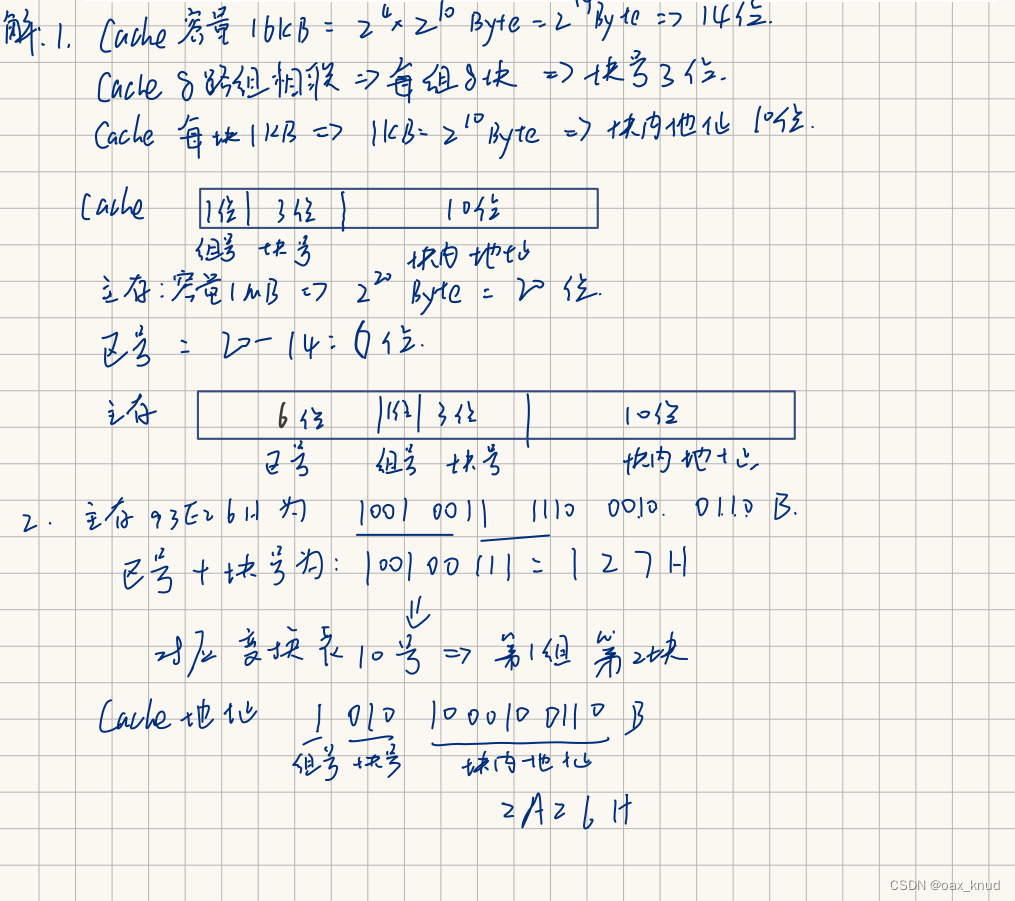 解:1. Cache 容量 16kB = 2⁴×2¹⁰ Byte = 2¹⁴Byte => 14位.
Cache 8路组相联 => 每组8块 => 块号3位.
Cache 每块1KB => 1KB=2¹⁰Byte => 块内地址 10位.
Cache 1位| 3位 | 10位
组号 块号 块内地址
主存:容量1MB => 2²⁰ Byte = 20 位.
区号 = 20-14=6位.
主存 6位 |1位| 3位 | 10位
区号 组号 块号 块内地址
2. 主存 93E26H 为 1001 0011 1110 0010. 0110 B.
区号 + 块号为: 100100 111 = 127H
⇓
对应变换表10号 => 第1组 第2块
Cache地址 1 010 1000100110 B
组号 块号 块内地址
2A26H
CSDN @oax_knud